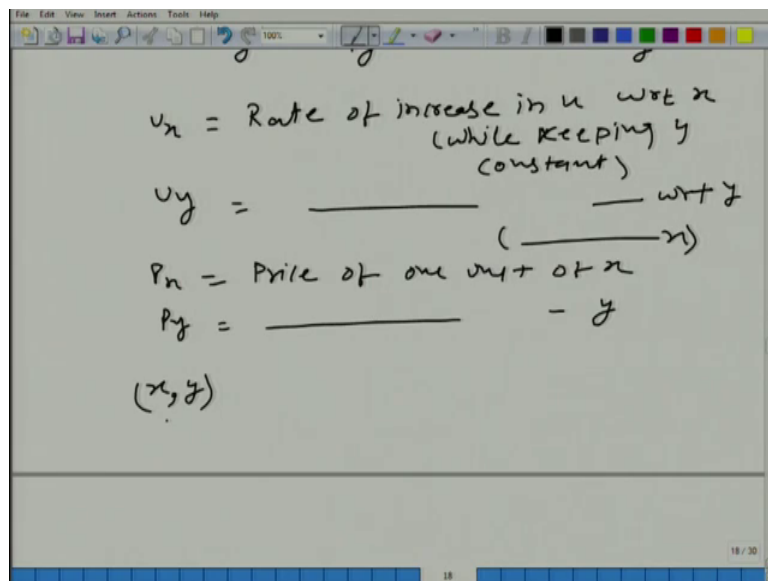 File Edit View Insert Actions Tools Help
100%
B I
Ux = Rate of increase in u wrt x
(while keeping y
constant)
Uy = ———— — wrt y
( ———— x)
Px = Price of one unit of x
Py = ———— - y
(x, y)
18 / 30
18